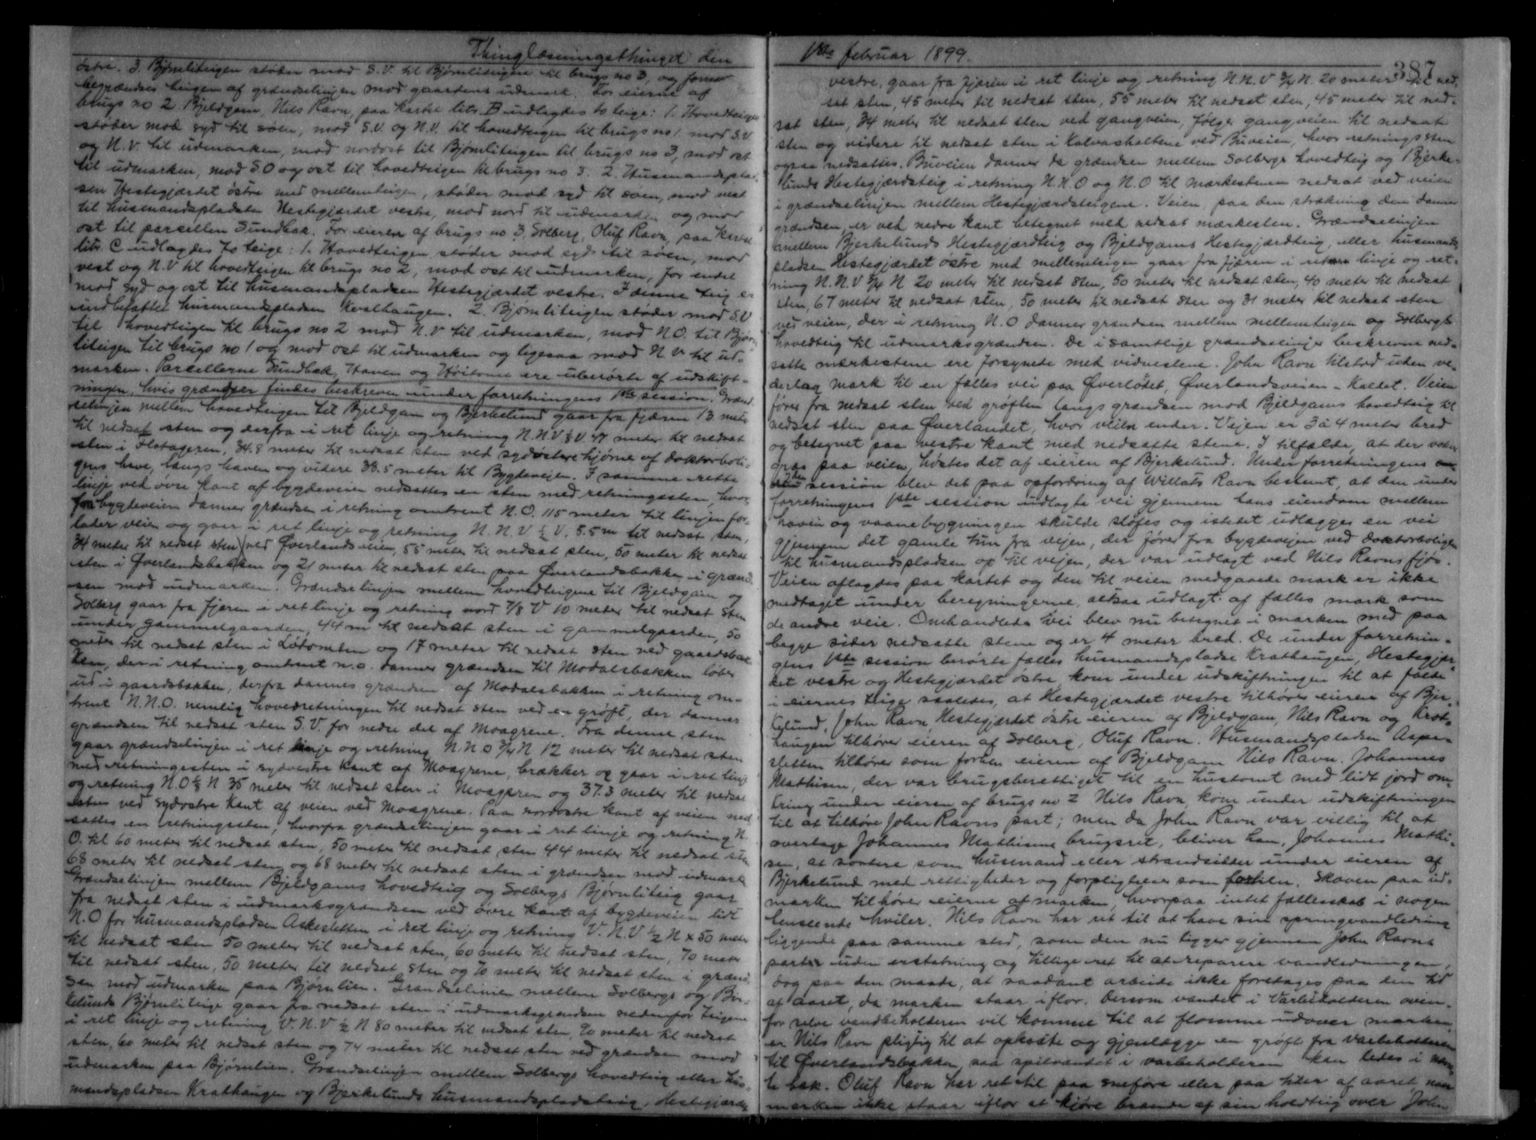 Thinglæsningsthinget den
østre. 3. Bjørnliteigen støder mod S.V. til Bjørnliteigen til brugs no 3, og forøvr
begrændses teigen af grændselinjen mod gaardens udmark. For eieren af
brugs no 2 Bjeldgam, Nils Ravn, paa kartet litr. B udlagdes to teige: 1. Hovedteigen
støder mod syd til søen, mod S.V. og N.V. til hovedteigen til brugs no 1 mod S.V
og N.V. til udmarken, mod nordost til Bjørnliteigen til brugs no 3, mod ost
til udmarken, mod S.O og ost til hovedteigen til brugs no 3. 2. Husmandsplad-
sen Hestegjærdet østre med mellemteigen, støder mod syd til søen, mod vest
til husmandspladsen Hestegjærdet vestre, mod nord til udmarken og mod
ost til parcellen Sundbak. For eieren af brugs no 3, Solberg, Oluf Ravn, paa kartet
litr. C udlagdes to teige: 1. Hovedteigen støder mod syd til søen, mod
vest og N.V til hovedteigen til brugs no 2, mod ost til udmarken, for endel
mod syd og ost til husmandspladsen Hestegjærdet vestre. I denne teig er
indbefattet husmandspladsen Krathaugen. 2. Bjørnliteigen støder mod S.V
til hovedteigen til brugs no 2 mod N.V til udmarken, mod N.O. til Bjørn-
liteigen til brugs no 1 og mod ost til udmarken og ligesaa mod N V til ud-
marken. Parcellerne Sundbak, Haven og Høitomt ere uberørte af udskift-
ningen, hvis grændser findes beskreven under forretningens 1ste session. Grænd-
selinjen mellem hovedteigen til Bjeldgam og Bjerkelund gaar fra fjæren 13 meter
til nedsat sten og derfra i ret linje og retning N N V ½ V 47 meter til nedsat
sten i Flotageren, 34.8 meter til nedsat sten ved sydøstre hjørne af doktorboli-
gens have, langs haven og videre 38.5 meter til Bygdeveien. I samme rette
linje ved øvre kant af bygdeveien nedsattes en sten med retningssten, hvor-
fra bygdeveien danner grændsen i retning omtrent N.O. 115 meter til linjen for-
lader veien og gaar i ret linje og retning N.N.V ½ V. 55 m til nedsat sten,
34 meter til nedsat sten ved Øverlandsveien, 55 meter til nedsat sten, 50 meter til nedsat
sten i Øverlandsbakken og 21 meter til nedsat sten paa Øverlandsbakken i grænd-
sen mod udmarken. Grændselinjen mellem hovedteigene til Bjeldgam og
Solberg gaar fra fjæren i ret linje og retning nord 7/8 V 10 meter til nedsat sten
under gammelgaarden, 44 m til nedsat sten i gammelgaarden, 50
meter til nedsat sten i Løtomten og 17 meter til nedsat sten ved gaardsbak-
ken, der i retning omtrent n.o. danner grændsen til Modalsbakken løber
ud i gaardsbakken, derfra dannes grændsen af Modalsbakken i retning om-
trent N.N.O. nemlig hovedretningen til nedsat sten ved en grøft, der danner
grændsen til nedsat sten S.V. for nedre del af Moagrene. Fra denne sten
gaar grændselinjen i ret linje og retning N N O ¾ N 12 meter til nedsat sten
med retningssten i sydvestre kant af Moagrene, brækker og gaar i ret linje
og retning N.O ½ N 35 meter til nedsat sten i Moageren og 37.3 meter til nedsat
sten ved sydøstre kant af veien ved Moagrene. Paa nordøstre kant af veien ned-
sattes en retningssten, hvorfra grændselinjen gaar i ret linje og retning N.
O. til 60 meter til nedsat sten, 50 meter til nedsat sten 44 meter til nedsat sten
68 meter til nedsat sten og 68 meter til nedsat sten i grændsen mod udmark
Grændselinjen mellem Bjeldgams hovedteig og Solbergs Bjørnliteig gaar
fra nedsat sten i udmarksgrændsen ved øvre kant af bygdeveien lidt
N.O for husmandspladsen Aspesletten i ret linje og retning V.N.V ½ N x 50 meter
til nedsat sten 50 meter til nedsat sten, 60 meter til nedsat sten, 70 meter
til nedsat sten, 50 meter til nedsat sten og 70 meter til nedsat sten i grænd-
sen mod udmarken paa Bjørnlien. Grændselinien mellem Solbergs og Bjer-
kelunds Bjørnliteige gaar fra nedsat sten i udmarksgrændsen nedenfor teigene
i ret linje og retning V.N.V ½ N 80 meter til nedsat sten, 70 meter til nedsat
sten, 60 meter til nedsat sten og 74 meter til nedsat sten ved grændsen mod
udmarken paa Bjørnlien. Grændselinjen mellem Solbergs hovedteig eller hus-
mandspladsen Krathaugen og Bjerkelunds husmandspladsteig, Hestegjærdet
1ste februar 1899.
387
vestre, gaar fra fjæren i ret linje og retning N.N.V ¾ N. 20 meter til ned-
sat sten, 45 meter til nedsat sten, 55 meter til nedsat sten, 45 meter til ned-
sat sten, 34 meter til nedsat sten ved gangveien, følger gangveien til nedsat
sten og videre til nedsat sten i Kalvashaltene ved Buveien, hvor retningssten
ogsaa nedsattes. Buveien danner da grændsen mellem Solbergs hovedteig og Bjerke-
lunds Hestegjærdsteig i retning N.N.O og N.O til mærkestenen nedsat ved veien
i grændselinjen mellem Hestegjærdsteigene. Veien paa den strækning den danner
grændsen, er ved nedre kant betegnet med nedsat mærkesten. Grændselinjen
mellem Bjerkelunds Hestegjærdteig og Bjeldgams Hestegjærdteig, eller husmands-
pladsen Hestegjærdet østre med mellemteigen gaar fra fjæren i ret linje og ret-
ning N.N.V ¾ N 20 meter til nedsat sten, 50 meter til nedsat sten, 40 meter til nedsat
sten, 67 meter til nedsat sten, 50 meter til nedsat sten og 31 meter til nedsat sten
ved veien, der i retning N.O danner grændsen mellem mellemteigen og Solbergs
hovedteig til udmarksgrændsen. De i samtlige grændselinjer beskrevne ned-
satte mærkestene ere forsynede med vidnestene. John Ravn tilstod uden ve-
derlag mark til en fælles vei paa Øverløtet, Øverlandsveien kaldet. Veien
føres fra nedsat sten ved grøften langs grændsen mod Bjeldgams hovedteig til
nedsat sten paa Øverlandet, hvor veien ender. Vejen er 3 a 4 meter bred
og betegnet paa vestre kant med nedsatte stene. I tilfælde, at der voxer
græs paa veien, høstes det af eieren af Bjerkelund. Under forretningens
session blev det paa opfordring af Willats Ravn bestemt, at den under
forretningens 1ste session udlagte vei gjennem hans eiendom mellem
haven og vaanebygningen skulde sløfes og istedet udlægges en vei
gjennem det gamle tun fra vejen, der fører fra bygdevejen ved doktorboligen
til husmandspladsen op til vejen, der var udlagt ved Nils Ravns fjøs.
Veien aflagdes paa kartet og den til veien medgaaede mark er ikke
medtaget under beregningerne, altsaa udlagt af fælles mark som
de andre veie. Omhandlede vei blev nu betegnet i marken med paa
begge sider nedsatte stene og er 4 meter bred. De under forretnin-
gens 1ste session berørte fælles husmandspladse Krathaugen, Hestegjær-
det vestre og Hestegjærdet østre, kom under udskiftningen til at falde
i eiernes teige saaledes, at Hestegjærdet vestre tilhører eieren af Bjer-
kelund, John Ravn, Hestegjærdet østre eieren af Bjeldgam, Nils Ravn og Krat-
haugen tilhører eieren af Solberg, Oluf Ravn. Husmandspladsen Aspe-
sletten tilhører som forhen eieren af Bjeldgam Nils Ravn. Johannes
Mathisen, der var brugsberettiget til en hustomt med lidt jord om-
kring under eieren af brugs no 2 Nils Ravn, kom under udskiftningen
til at tilhøre John Ravns part; men da John Ravn var villig til at
overtage Johannes Mathisens brugsret, bliver han, Johannes Mathi-
sen, at sortere som husmand eller strandsidder under eieren af
Bjerkelund med rettigheder og forpligtelser som forhen. Skoven paa ud-
marken tilhører eierne af marken, hvorpaa intet fællesskab i nogen
henseende hviler. Nils Ravn har ret til at have sin springvandledning
liggende paa samme sted, som den nu ligger gjennem John Ravns
parter uden erstatning og tillige ret til at reparere vandledningen,
dog paa den maade, at saadant arbeide ikke foretages paa den tid
af aaret, da marken staar iflor. Dersom vandet i Varbeholderen oven-
for selve vandbeholderen vil komme til at flomme udover marken,
er Nils Ravn pligtig til at opkaste og gjenlægge en grøft fra varbeholderen
til Øverlandsbakken, saa spilvandet i varbeholderen kan ledes i nævn-
te bæk. Oluf Ravn har ret til paa sneføre eller paa tider af aaret naar
marken ikke staar iflor at kjøre brænde af sin hovdteig over John